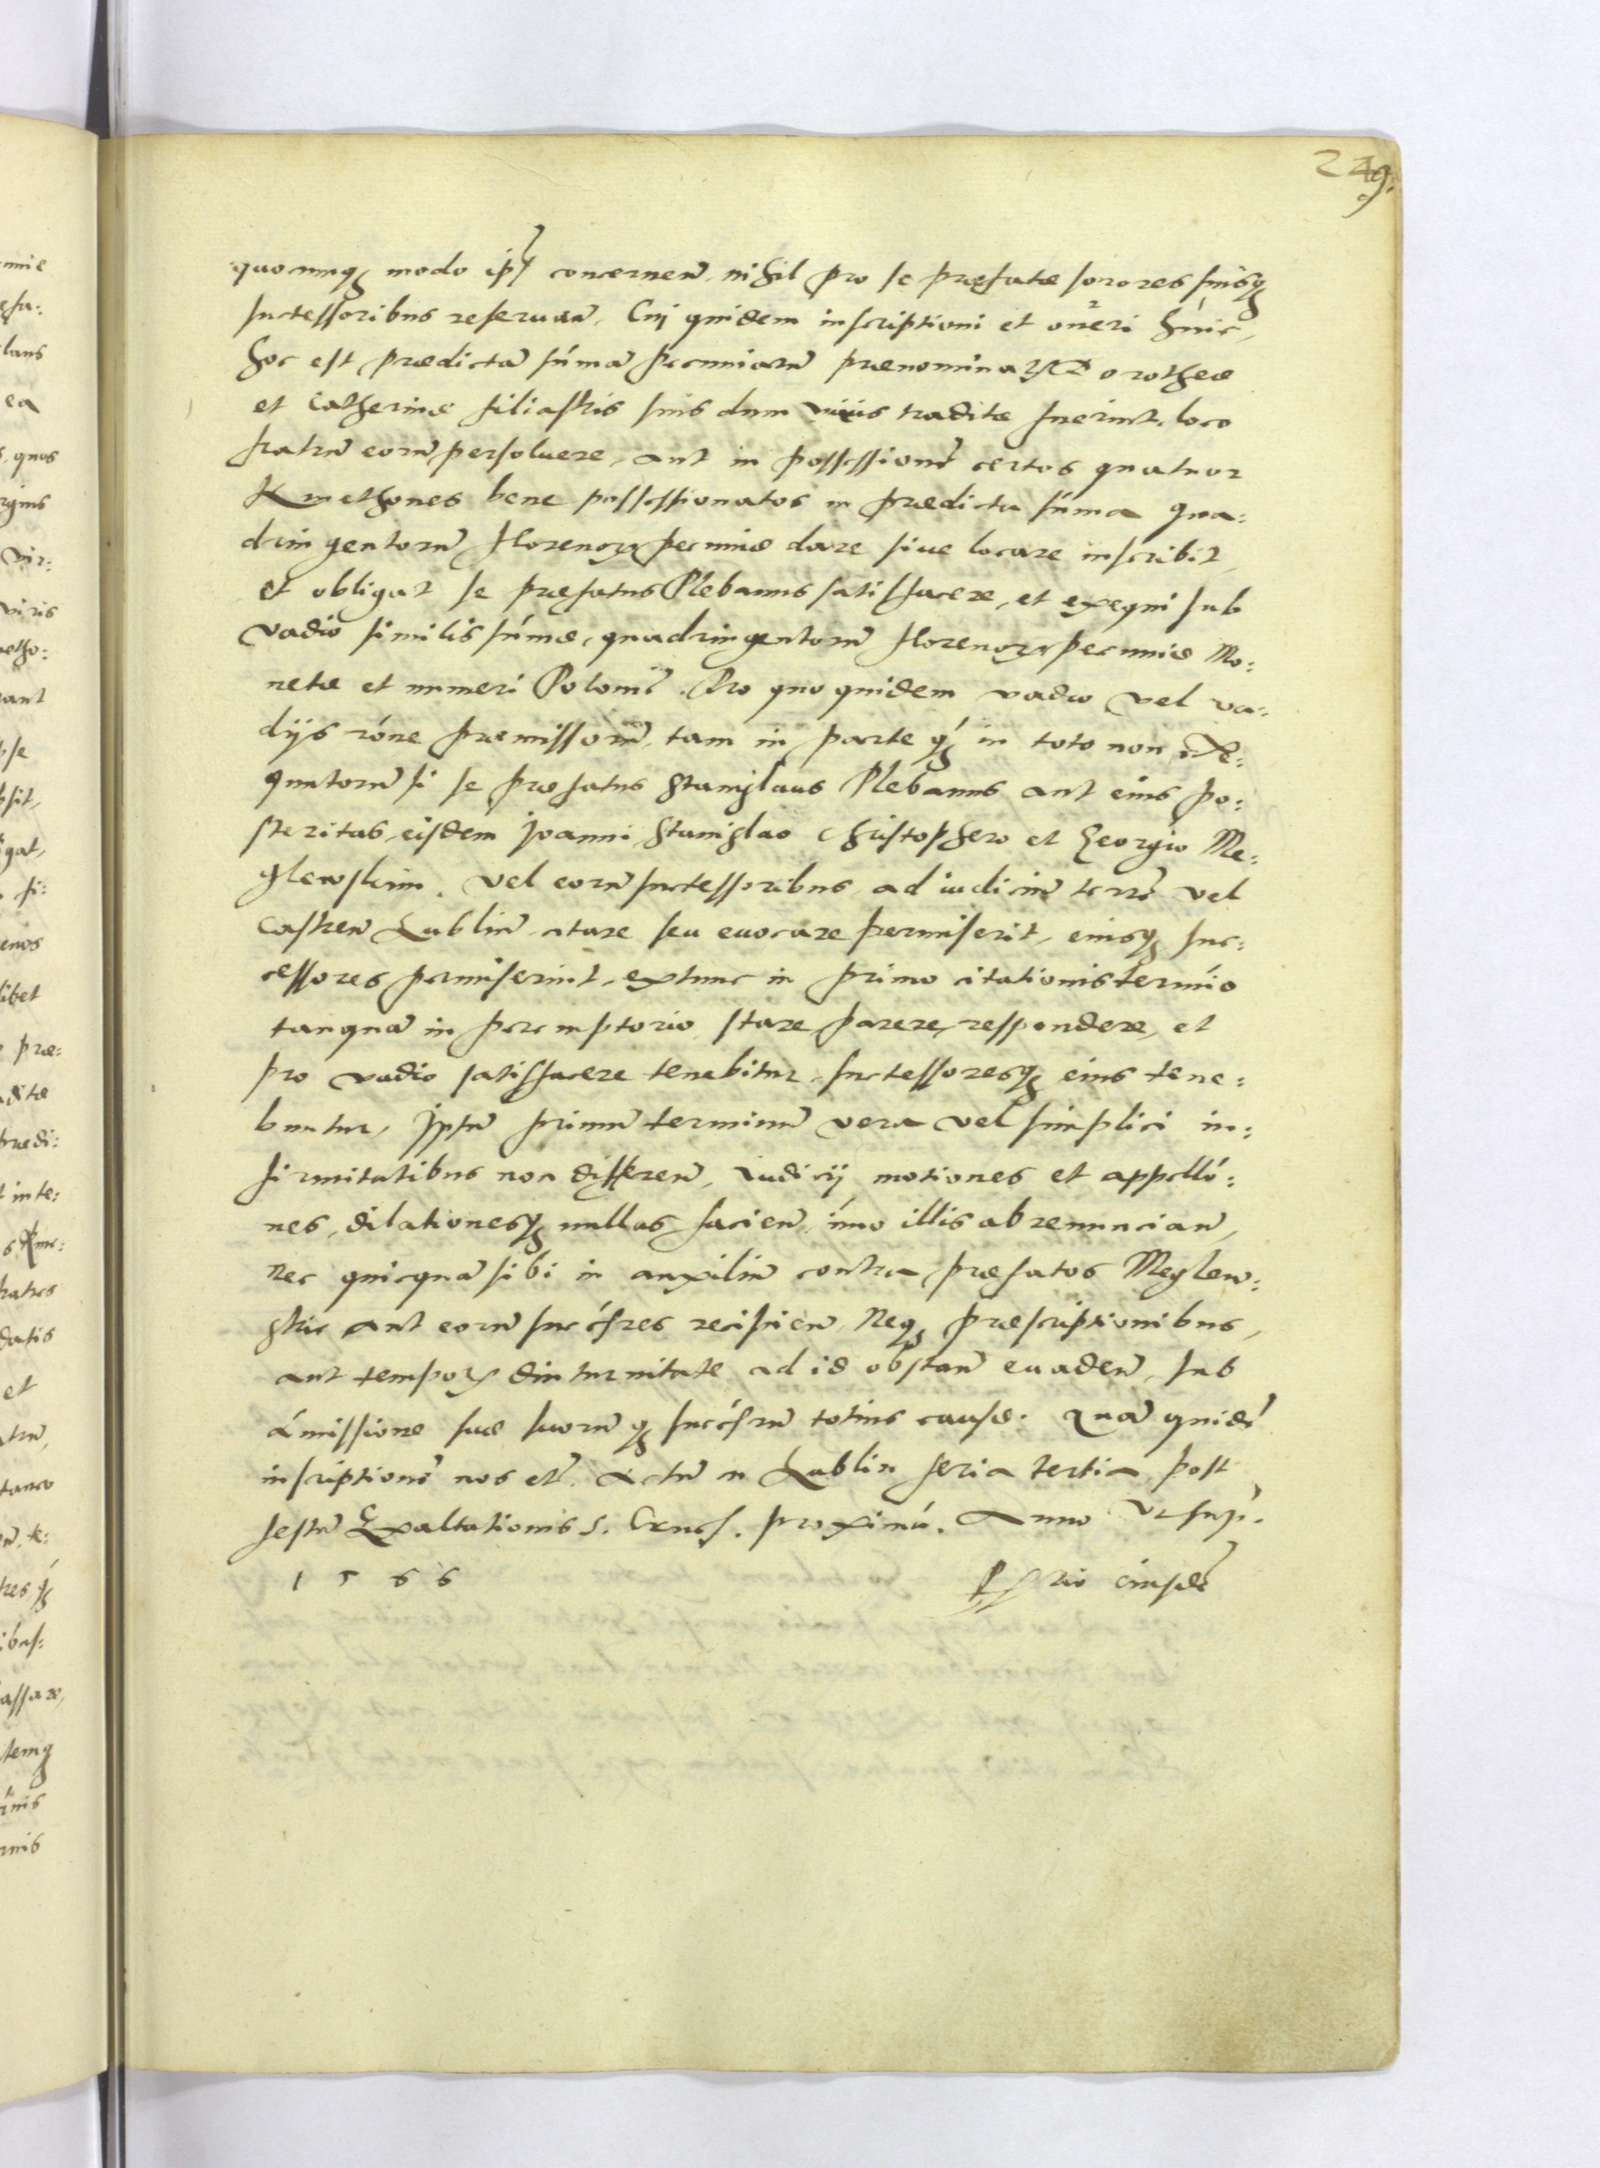 229.
quocunq modo ips concernen. nihil pro se præfatæ sorores suisq
successoribus reseruan. Cuj quidem inscriptioni et oneri huic,
hoc est prædictā sumā pecuniarū prænomina Dorotheæ
et Catherinæ filiastris suis dum viris traditæ fuerint, loco
fratrū eorū persoluere, aut in possessionē certos quatuor
Kmethones bene possessionatos in prædicta suma qua:
dringentorū florenorum pecuniæ dare siue locare inscribit
et obligat se præfatus Plebanus satisfacere, et exequi sub
vadio similis sumæ, quadringentorū florenorum pecuniæ Mo:
netæ et numeri Poloni. Pro quo quidem vadio vel va:
dijs róne premissorū, tam in parte q in toto non exe:
qutorū si se præfatus Stanislaus Plebanus aut eius po:
steritas, eisdem Joanni Stanislao Christophero et Georgio Me:
glewskim. vel eorū successoribus ad iudiciū terrē vel
castren Lublin citare seu euocare permiserit, eiusq suc:
cessores permiserint, extunc in primo citationis termino
tanquā in peremptorio stare parere, respondere, et
pro vadio satisfacere tenebitur, successoresq eius tene:
buntur, Ipsū primū terminū vera vel simplici in:
firmitatibus non differen, Iudicij motiones et appelló:
nes, dilationesq nullas facien, imo illis abrenuncian,
nec quicquā sibi in auxiliū contra præfatos Meglew:
skie aut eorū succesres recipien, Neq præscriptionibus,
aut tempor diuturnitate ad id obstan euaden, sub
ámissione suæ suorū q succesrū totius causæ: Quā quidē
inscriptionē nos etc. Actū in Lublin feria tertia post
festū Exaltationis S. Crucs. proximú. Anno vt sup.
1566 rio eiusdē